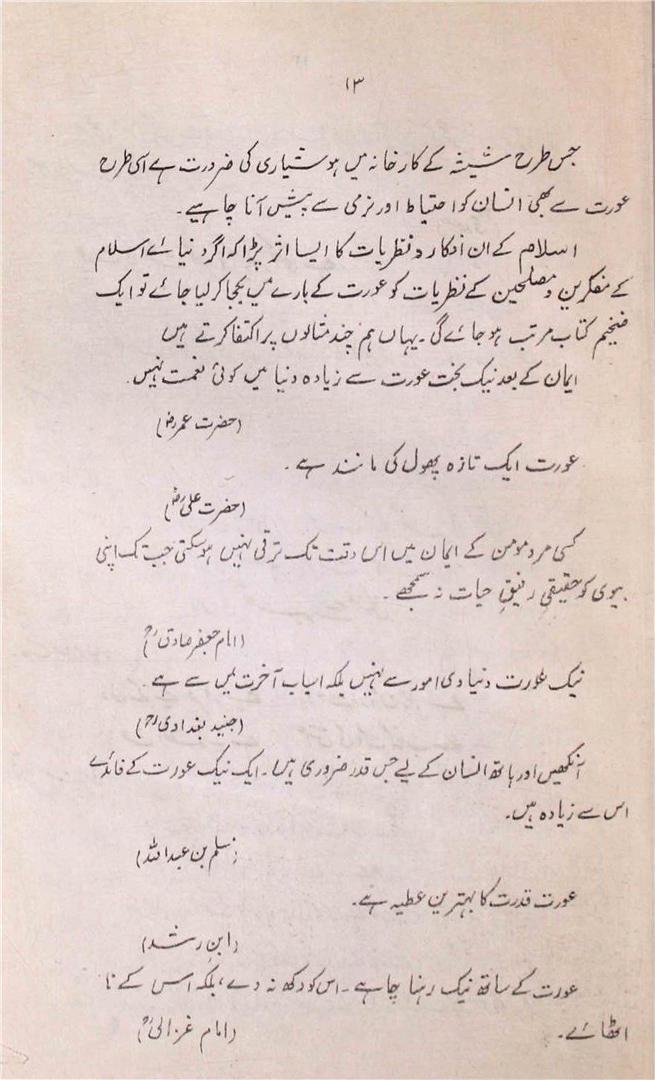 ۱۳
جس طرح شیشہ کے کارخانہ میں ہوشیاری کی ضرورت ہے اسی طرح
عورت سے بھی انسان کو احتیاط اور نرمی سے پیش آنا چاہیے۔
اسلام کے ان افکار و نظریات کا ایسا اثر پڑا کہ اگر دنیائے اسلام
کے مفکرین و مصلحین کے نظریات کو عورت کے بارے میں یکجا کر لیا جائے تو ایک
ضخیم کتاب مرتب ہو جائے گی۔ یہاں ہم چند مثالوں پر اکتفا کرتے ہیں
ایمان کے بعد نیک بخت عورت سے زیادہ دنیا میں کوئی نعمت نہیں۔
(حضرت عمرؓ)
عورت ایک تازہ پھول کی مانند ہے۔
(حضرت علیؓ)
کسی مرد مومن کے ایمان میں اس وقت تک ترقی نہیں ہو سکتی جب تک اپنی
بیوی کو حقیقی رفیقِ حیات نہ سمجھے۔
(امام جعفر صادقؒ)
نیک عورت دنیاوی امور سے نہیں بلکہ اسباب آخرت میں سے ہے۔
(جنید بغدادیؒ)
آنکھیں اور ہاتھ انسان کے لیے جس قدر ضروری ہیں۔ ایک نیک عورت کے فائدے
اس سے زیادہ ہیں۔
(مسلم بن عبداللہ)
عورت قدرت کا بہترین عطیہ ہے۔
(ابن رشد)
عورت کے ساتھ نیک رہنا چاہیے۔ اس کو دکھ نہ دے، بلکہ اس کے
اٹھائے۔
(امام غزالیؒ)